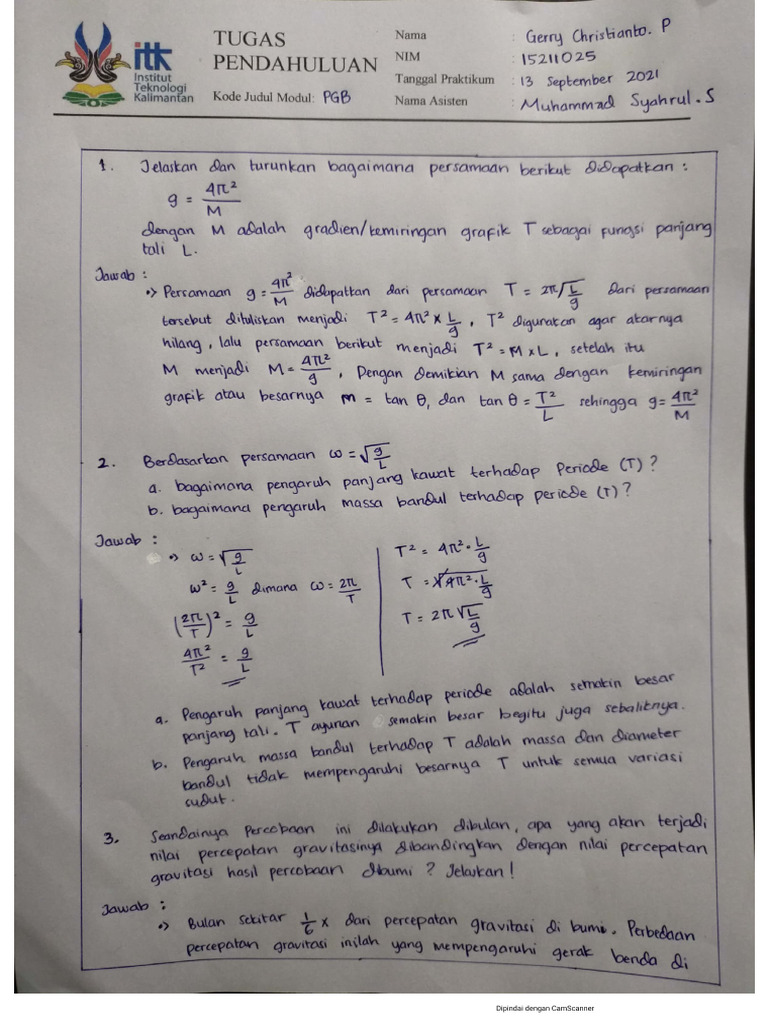 itk
Institut
Teknologi
Kalimantan
TUGAS
PENDAHULUAN
Kode Judul Modul: PGB
Nama : Gerry Christianto. P
NIM : 15211025
Tanggal Praktikum : 13 September 2021
Nama Asisten : Muhammad Syahrul. S
1. Jelaskan dan turunkan bagaimana persamaan berikut didapatkan :
g = 4π²/M
dengan M adalah gradien/kemiringan grafik T sebagai fungsi panjang
tali L.
Jawab :
•> Persamaan g = 4π²/M didapatkan dari persamaan T = 2π√(L/g) dari persamaan
tersebut dituliskan menjadi T² = 4π² × L/g , T² digunakan agar akarnya
hilang, lalu persamaan berikut menjadi T² = M × L, setelah itu
M menjadi M = 4π²/g , Dengan demikian M sama dengan kemiringan
grafik atau besarnya m = tan θ, dan tan θ = T²/L sehingga g = 4π²/M
2. Berdasarkan persamaan ω = √(g/L)
a. bagaimana pengaruh panjang kawat terhadap Periode (T) ?
b. bagaimana pengaruh massa bandul terhadap periode (T) ?
Jawab :
•> ω = √(g/L)
ω² = g/L dimana ω = 2π/T
(2π/T)² = g/L
4π²/T² = g/L
T² = 4π² · L/g
T = √(4π² · L/g)
T = 2π √(L/g)
a. Pengaruh panjang kawat terhadap periode adalah semakin besar
panjang tali. T ayunan semakin besar begitu juga sebaliknya.
b. Pengaruh massa bandul terhadap T adalah massa dan diameter
bandul tidak mempengaruhi besarnya T untuk semua variasi
sudut.
3. Seandainya Percobaan ini dilakukan dibulan, apa yang akan terjadi
nilai percepatan gravitasinya dibandingkan dengan nilai percepatan
gravitasi hasil percobaan dibumi ? Jelaskan !
Jawab :
•> Bulan sekitar 1/6 × dari percepatan gravitasi di bumi. Perbedaan
percepatan gravitasi inilah yang mempengaruhi gerak benda di
Dipindai dengan CamScanner